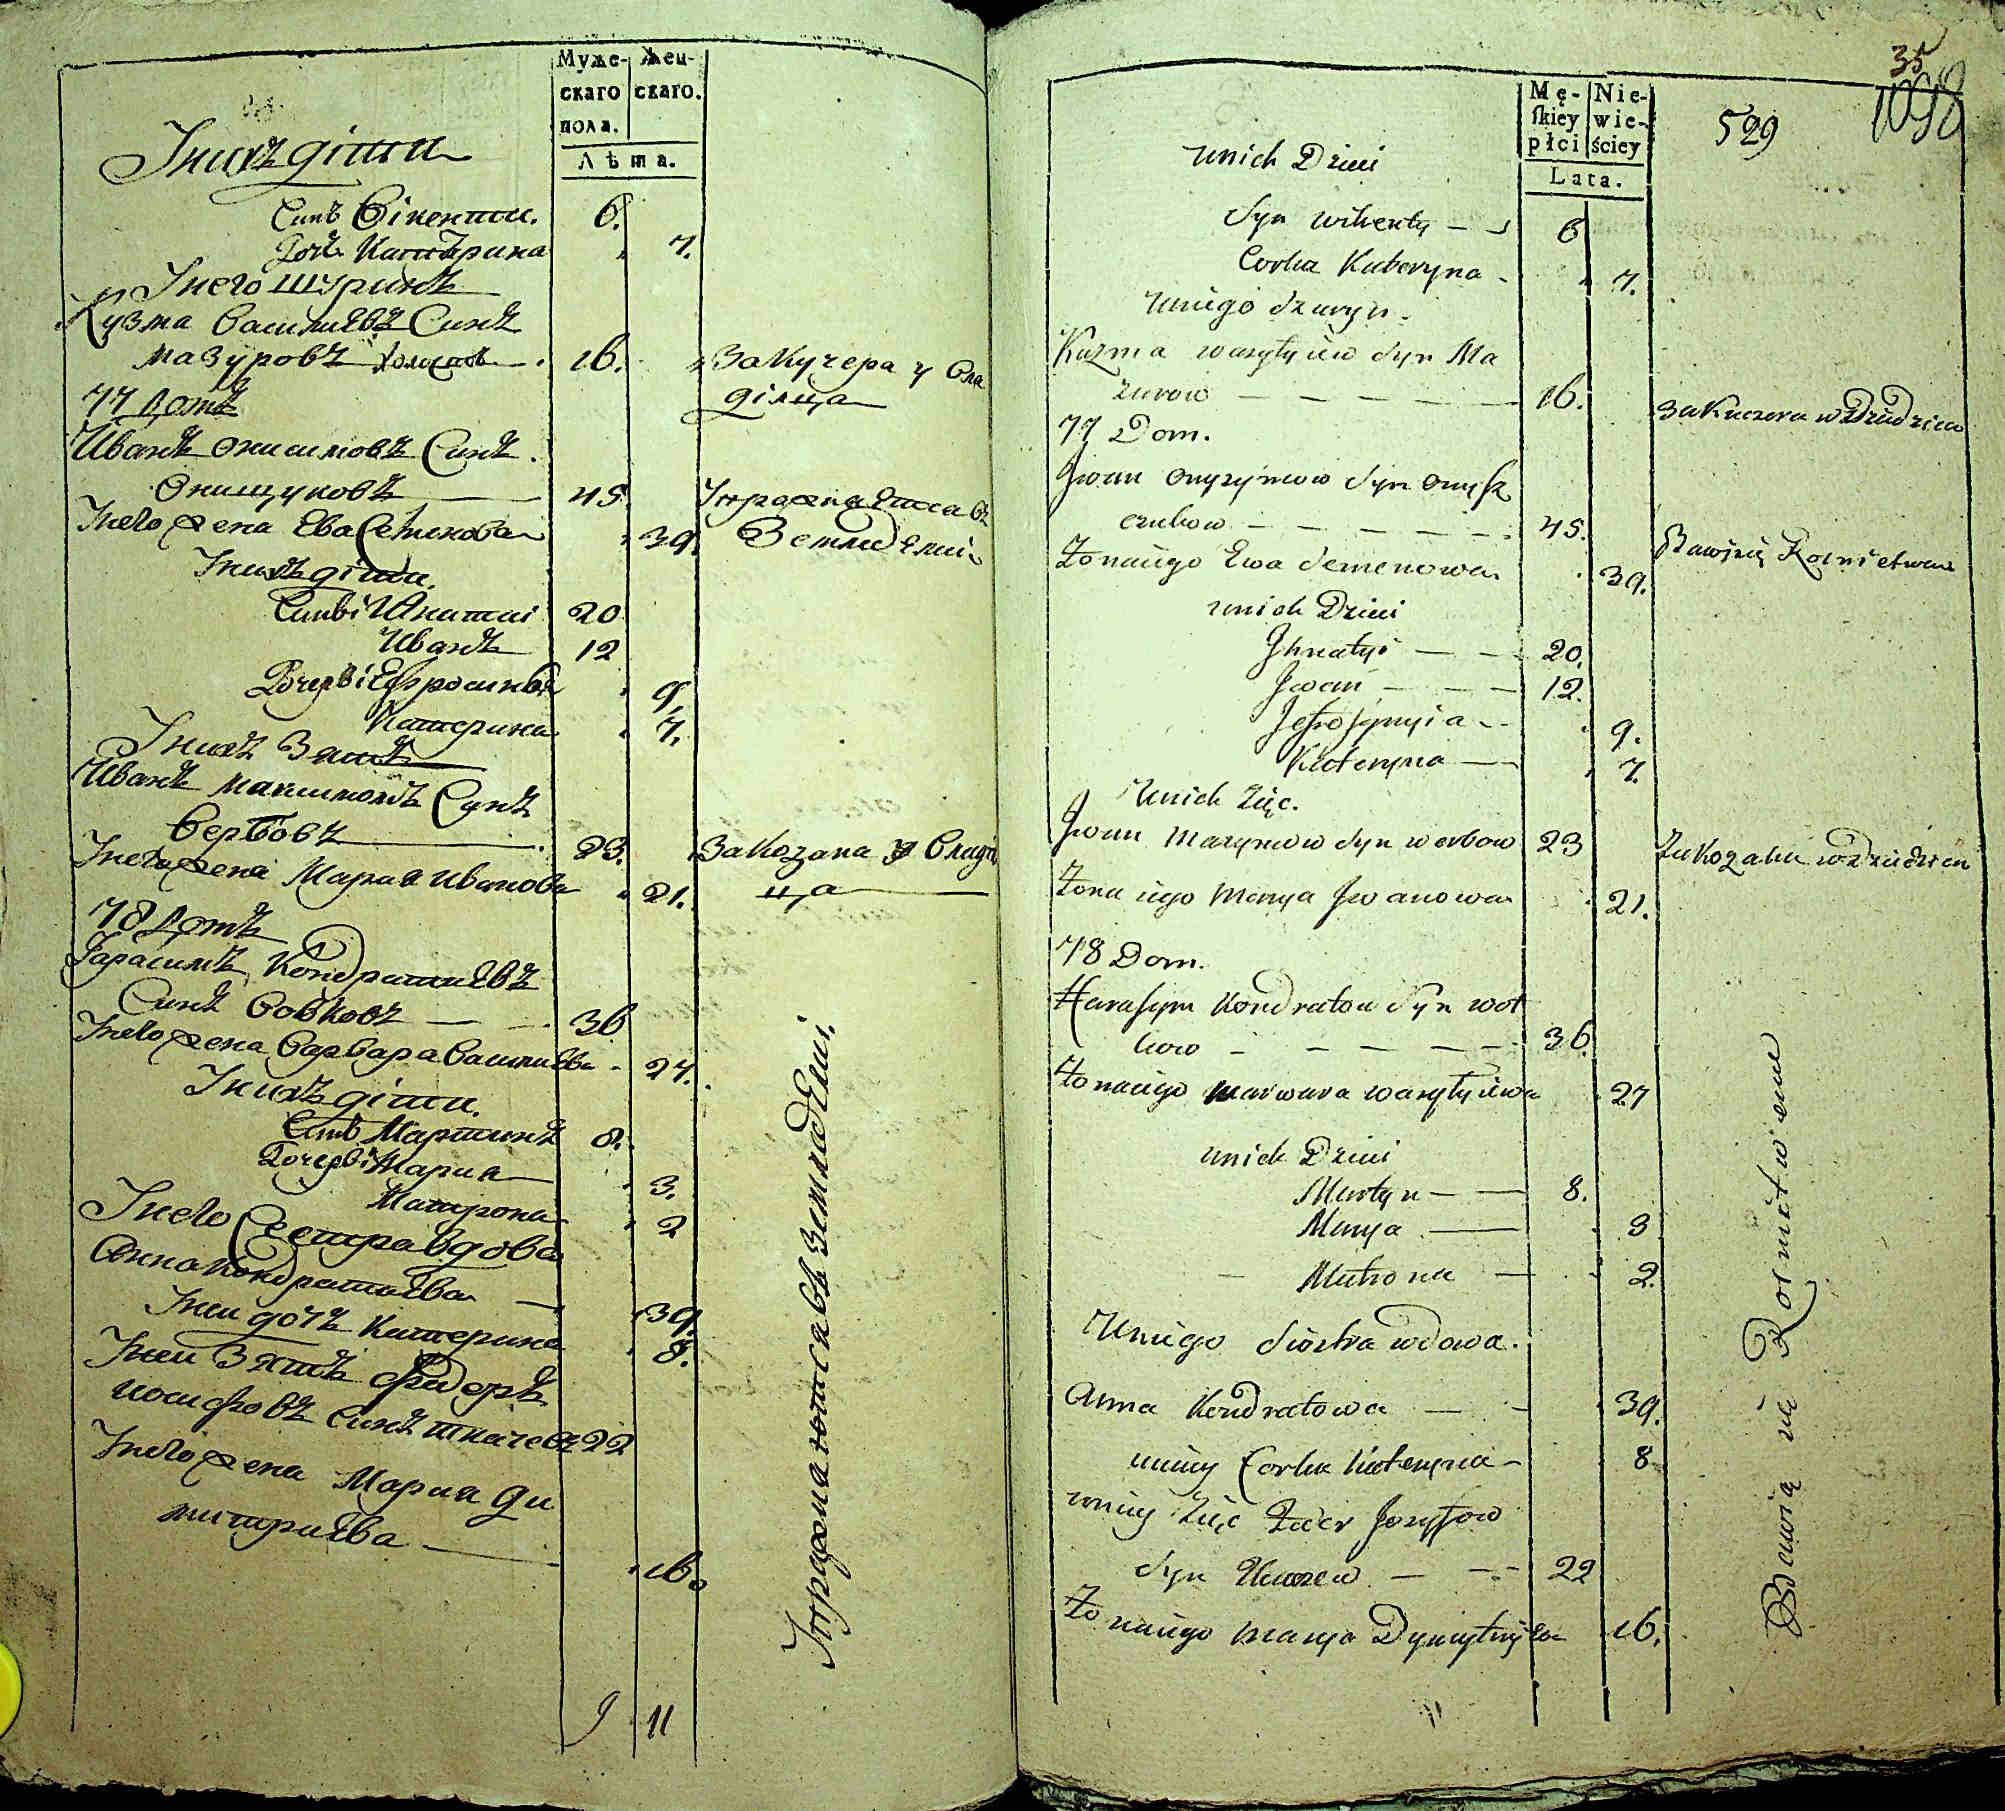 Муже- Жен-
скаго скаго.
пола.
Лѣта.
У нихъ дѣти
Синъ Вікентий. 6.
Дочъ Катерина 7.
У него шуринъ
Кузма Васильевъ Синъ
Мазуровъ холостъ 16. За Кучера у Вла
ділца
77 Домъ
Иванъ Онисимовъ Синъ
Онищуковъ 45. Упражнается въ
Земледелии
У него жена Ева Семенова 39.
У нихъ діти.
Синві Игнатиі 20
Иванъ 12
Дочери Ефросинія 9.
Катерина 7.
У нихъ Зять
Иванъ Максимовъ Синъ
Вербовъ 23. За Козака у Владіл
ца
У него жена Мария Иванова 21.
78 Домъ
Гарасимъ Кондратиевъ
Синъ Вовковъ 36
У него жена Варвара Василиева 27.
У нихъ діти.
Синъ Мартинъ 8.
Дочери Мария 3.
Матрона 2
У него Сестра вдова
Анна Кондратиева 39.
У неи дочъ Катерина 8.
У неи Зять Фидоръ
Иосифовъ Синъ Ткачевъ 22
У него жена Мария Ди
митриева 16.
Упражнаются въ Земледелиі.
9 11
35
1098
529
Mę- Nie-
ſkiey wie-
płci ściey
Lata.
u nich Dzieci
Syn Wikenty 6
Corka Kateryna 7.
u niego szuryn.
Kuzma Wasylyiew Syn Ma
zurow 16. za Kuczera w dziedzica
77 Dom.
Jwan Onyzymow Syn Onysz
czukow 45. Bawisię Rolnictwem
Zona iego Ewa Semenowa 39.
u nich Dzieci
Jhnatyi 20.
Jwan 12.
Jefrosynyia 9.
Kateryna 7.
u nich Zięc.
Jwan Maxymow Syn Werbow 23 Za Kozaka w dziedzica
Zona iego Marya Jwanowa 21.
78 Dom.
Harasym Kondratow Syn Wow
kow 36.
Zona iego Warwara Wasylyiewa 27
u nich Dzieci
Martyn 8.
Marya 3
Matrona 2.
U niego Siostra wdowa.
Anna Kondratowa 39.
u niey Corka Kateryna 8
u niey Zięc Fedor Jozyfow
Syn Tkaczew 22
Zona iego Marya Dymytryiewa 16.
Bawią się Rolnictwem